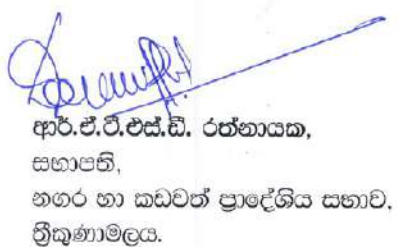 ආර්.ඒ.ටී.එස්.ඩී. රත්නායක,
සභාපති,
නගර හා කඩවත් ප්‍රාදේශිය සභාව,
ත්‍රීකුණාමලය.